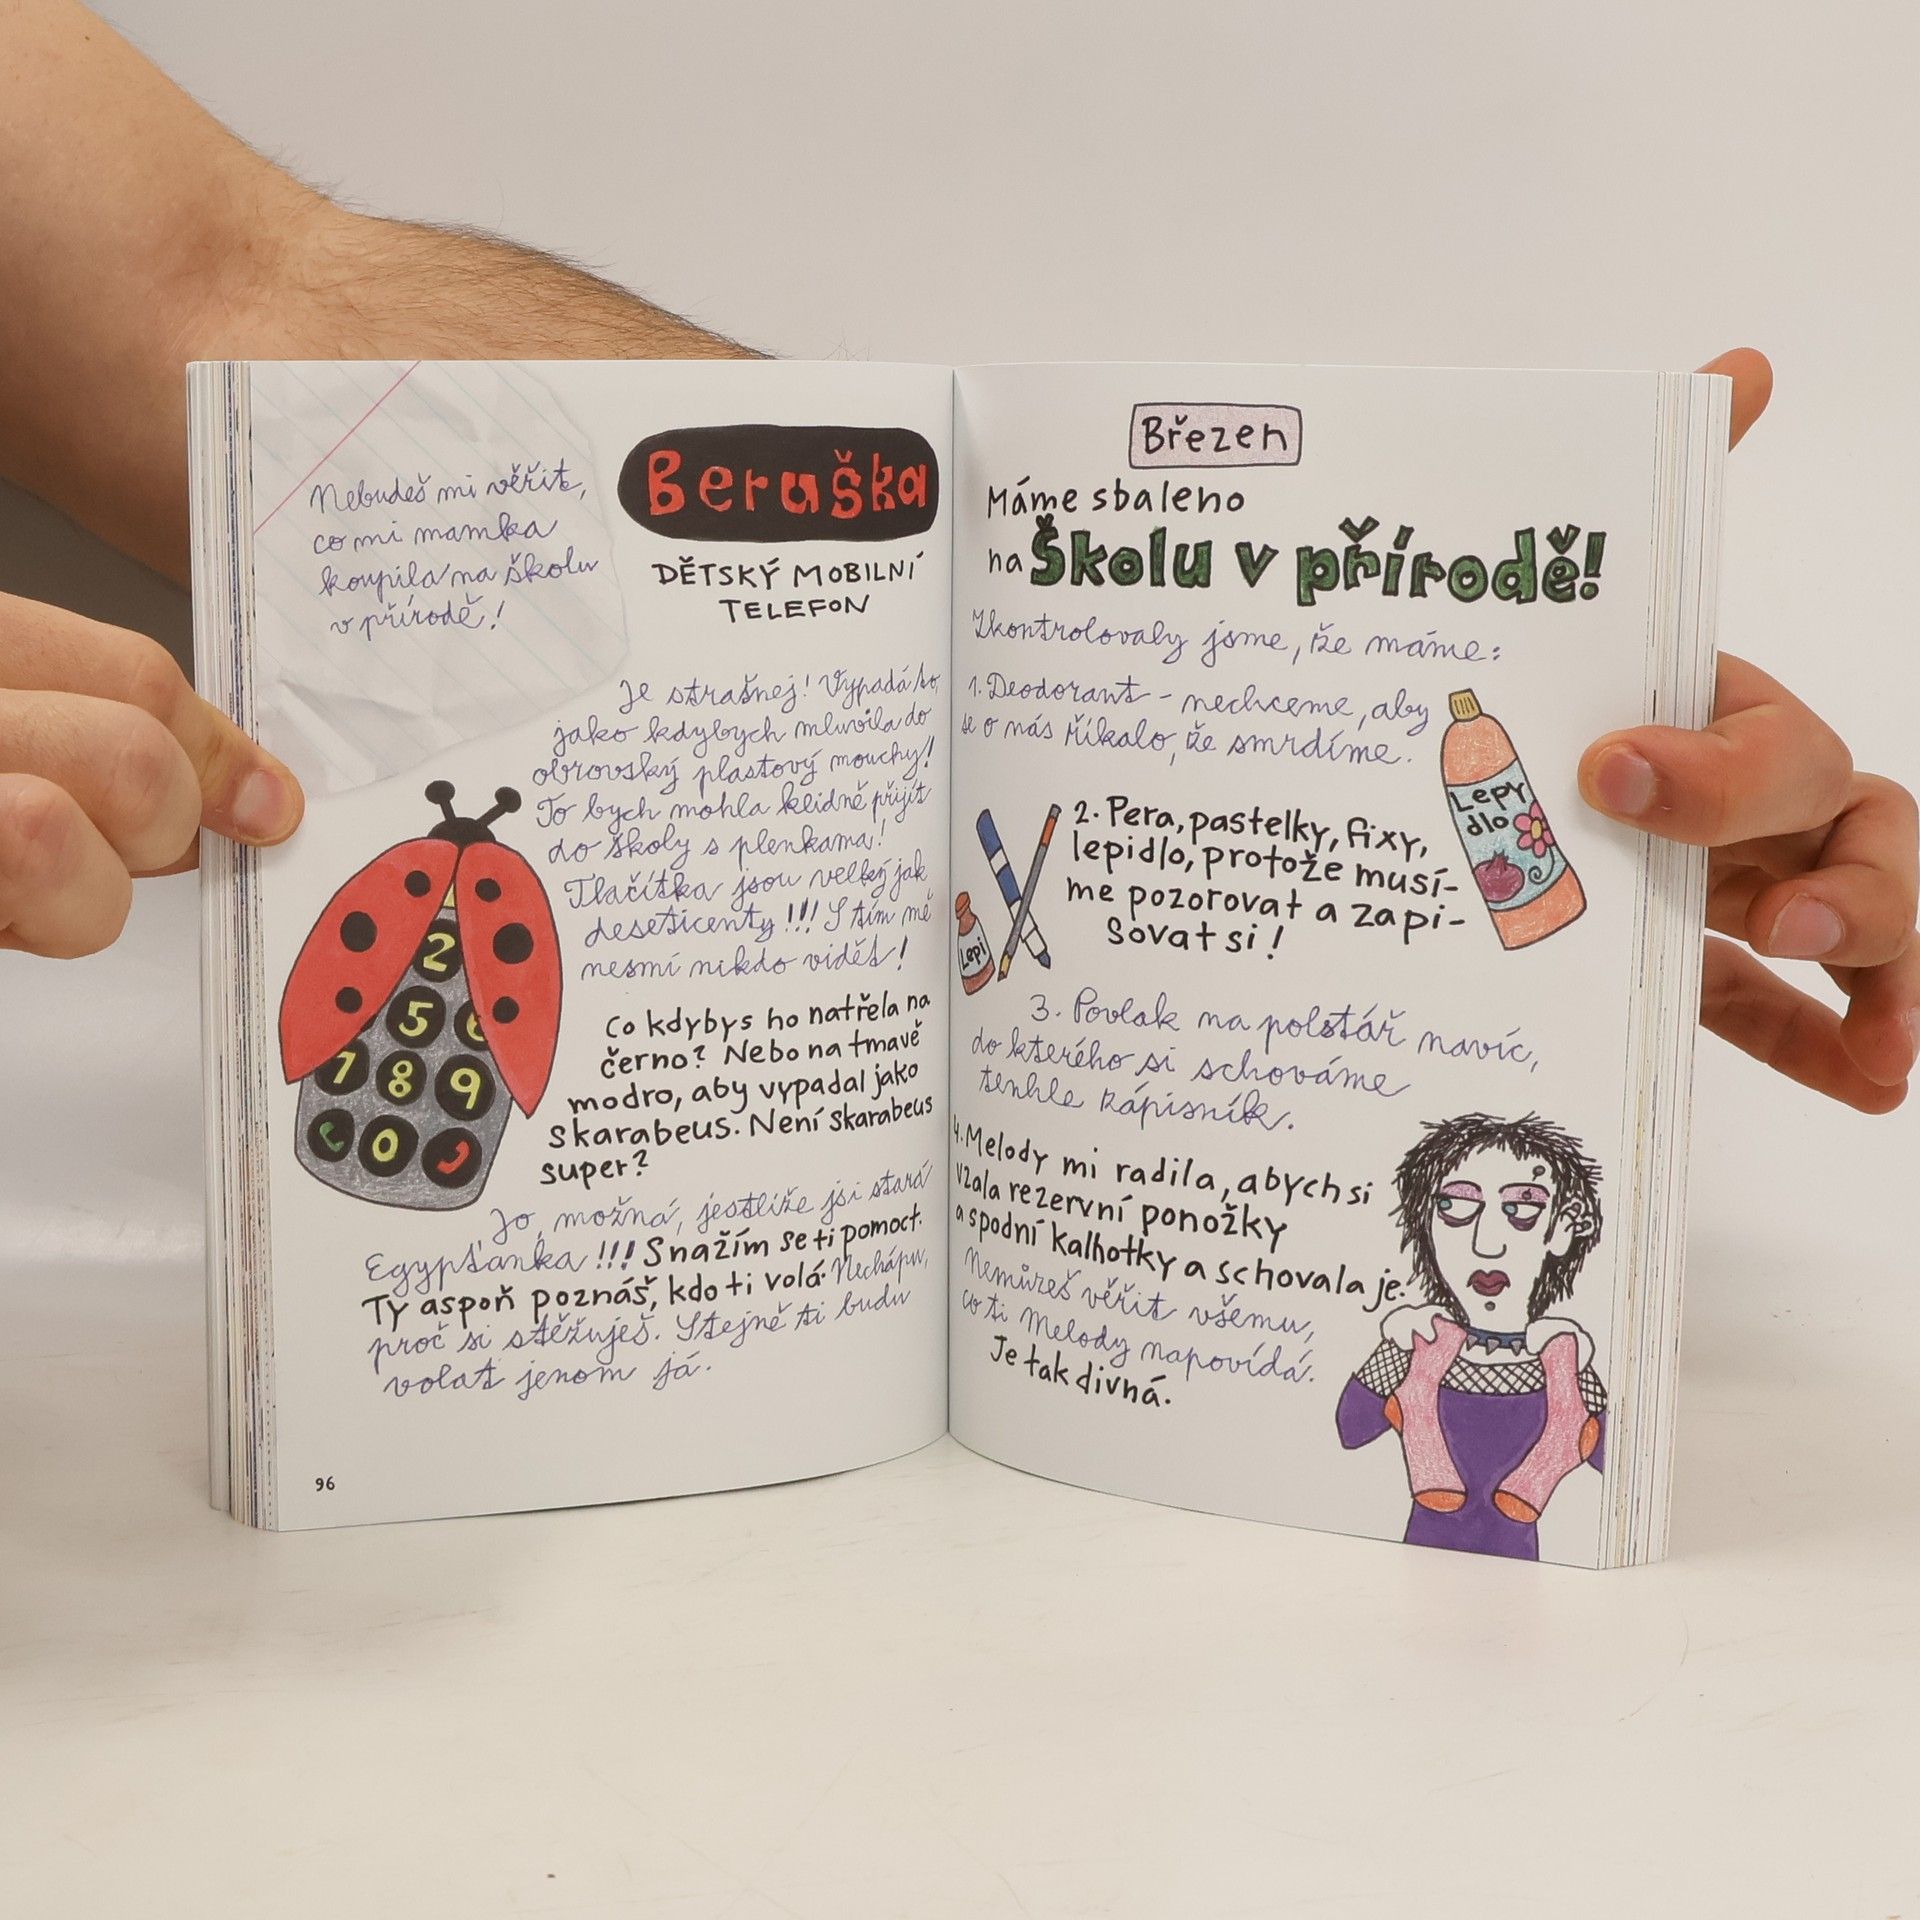 Nebudeš mi věřit,
co mi mamka
koupila na školu
v přírodě!
Beruška
DĚTSKÝ MOBILNÍ
TELEFON
Je strašnej! Vypadá to,
jako kdybych mluvila do
obrovský plastový mouchy!
To bych mohla klidně přijít
do školy s plenkama!
Tlačítka jsou velký jak
deseticenty!!! S tím mě
nesmí nikdo vidět!
2
5 6
7 8 9
0
Co kdybys ho natřela na
černo? Nebo na tmavě
modro, aby vypadal jako
skarabeus. Není skarabeus
super?
Jo, možná, jestliže jsi stará
Egypťanka!!! Snažím se ti pomoct.
Ty aspoň poznáš, kdo ti volá. Nechápu,
proč si stěžuješ. Stejně ti budu
volat jenom já.
96
Březen
Máme sbaleno
na Školu v přírodě!
Zkontrolovaly jsme, že máme:
1. Deodorant - nechceme, aby
se o nás říkalo, že smrdíme.
Lepy
dlo
2. Pera, pastelky, fixy,
lepidlo, protože musí-
me pozorovat a zapi-
sovat si!
Lepi
3. Povlak na polštář navíc,
do kterého si schováme
tenhle zápisník.
4. Melody mi radila, abych si
vzala rezervní ponožky
a spodní kalhotky a schovala je.
Nemůžeš věřit všemu,
co ti Melody napovídá.
Je tak divná.